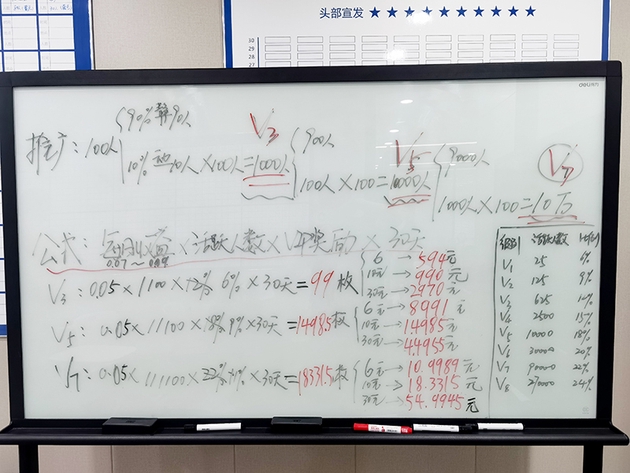 头部宣发 ★★★★★★★★★★
30
29
28
27
deli
{90% 90人
推广：100人
10% 10人×100人=1000人
V3
{900人
100人×100=10000人
V5
{9000人
1000人×100=10万
V7
公式： ×活跃人数×V 奖励×30天
0.07~
V3：0.05×1100× 6%×30天=99枚
{6元→594元
10元→990元
30元→2970元
V5：0.05×11100× 9%×30天=1498.5枚
{6→8991元
10元→14985元
30元→44955元
V7：0.05×111100× ×30天=18331.5枚
{6元→10.9989元
10元→18.3315元
30元→54.9945元
级别 活跃人数
V1 25 6%
V2 125 9%
V3 625 12%
V4 2500 15%
V5 10000 18%
V6 30000 20%
V7 90000 22%
V8 270000 24%